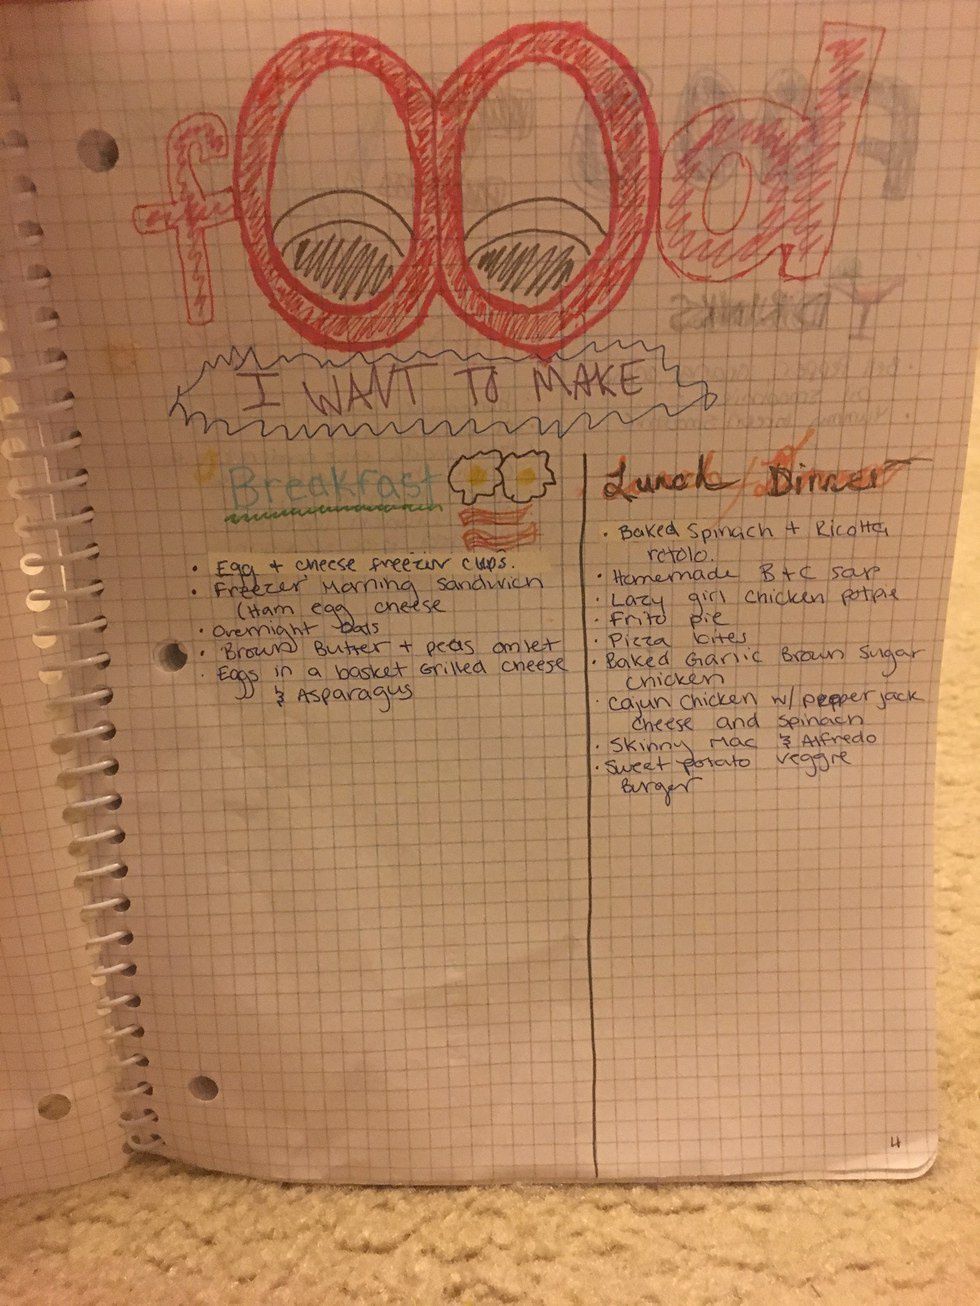 fOOd
I WANT TO MAKE
Breakfast
• Egg + cheese freezer cups.
• Freezer Morning Sandwich
(Ham egg cheese
• Overnight Oats
• Brown Butter + peas omlet
• Eggs in a basket Grilled cheese
& Asparagus
Lunch / Dinner
• Baked Spinach + Ricotta
rotolo.
• Homemade B+C soup
• Lazy girl chicken potpie
• Frito pie
• Pizza bites
• Baked Garlic Brown Sugar
chicken
• Cajun Chicken w/ pepper jack
cheese and spinach
• Skinny Mac & Alfredo
• Sweet potato veggie
Burger
4
DRINKS